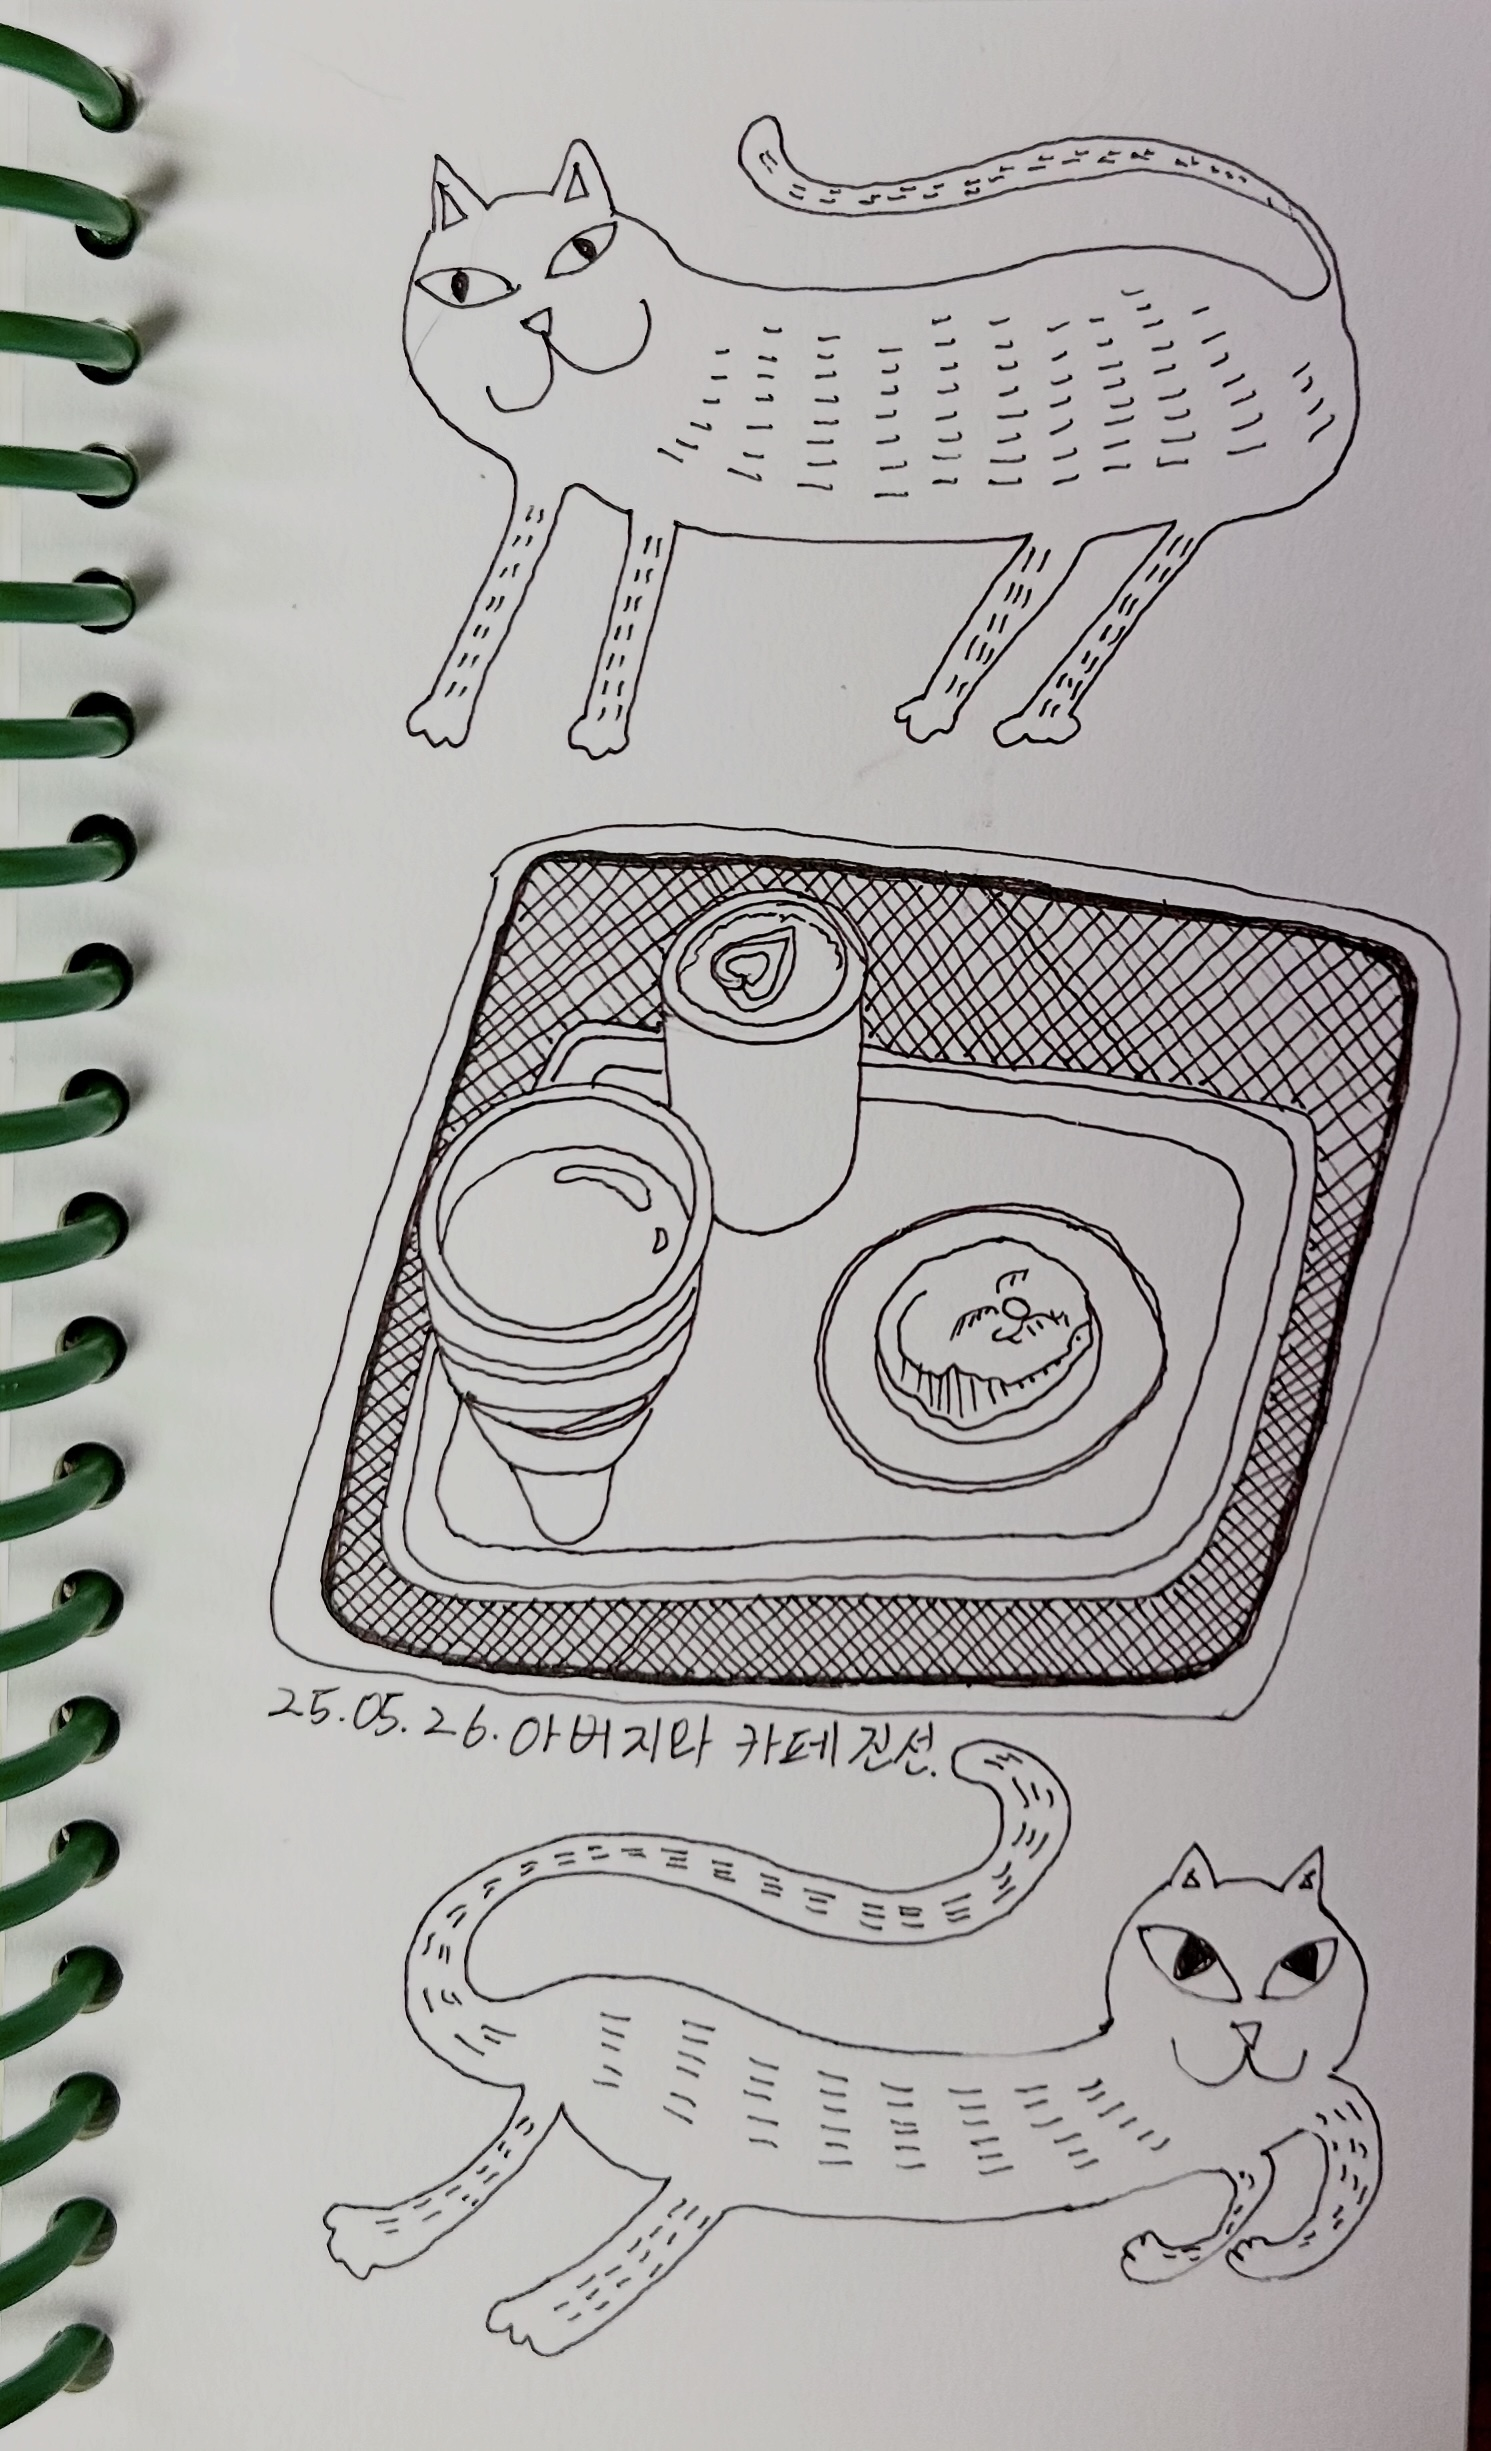 25.05.26. 아버지와 카페진선.